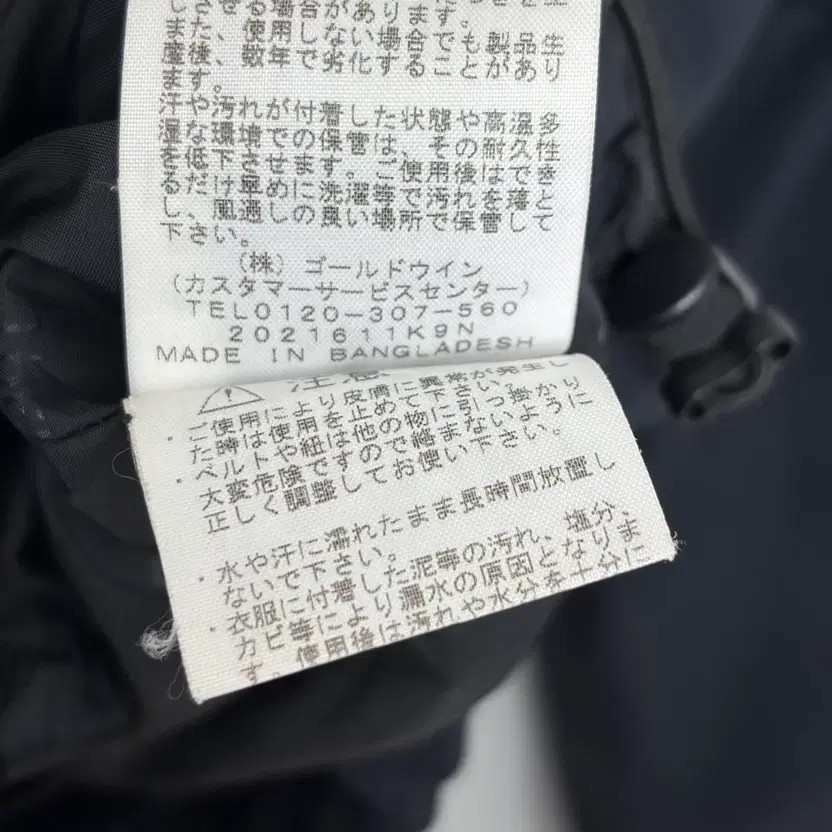 させる場合があります。
また、使用しない場合でも製品生
産後、数年で劣化することがあり
ます。
汗や汚れが付着した状態や高温多
湿な環境での保管は、その耐久性
を低下させます。ご使用後はでき
るだけ早めに洗濯等で汚れを落と
し、風通しの良い場所で保管して
下さい。
(株) ゴールドウイン
(カスタマーサービスセンター)
TEL0120-307-560
2021611K9N
MADE IN BANGLADESH
注意
・ご使用により皮膚に異常が発生し
た時は使用を止めて下さい。
・ベルトや紐は他の物に引っ掛かり
大変危険ですので絡まないように
正しく調整してお使い下さい。
・水や汗に濡れたまま長時間放置し
ないで下さい。
・衣服に付着した泥等の汚れ、塩分、
カビ等により漏水の原因となりま
す。使用後は汚れや水分を十分に